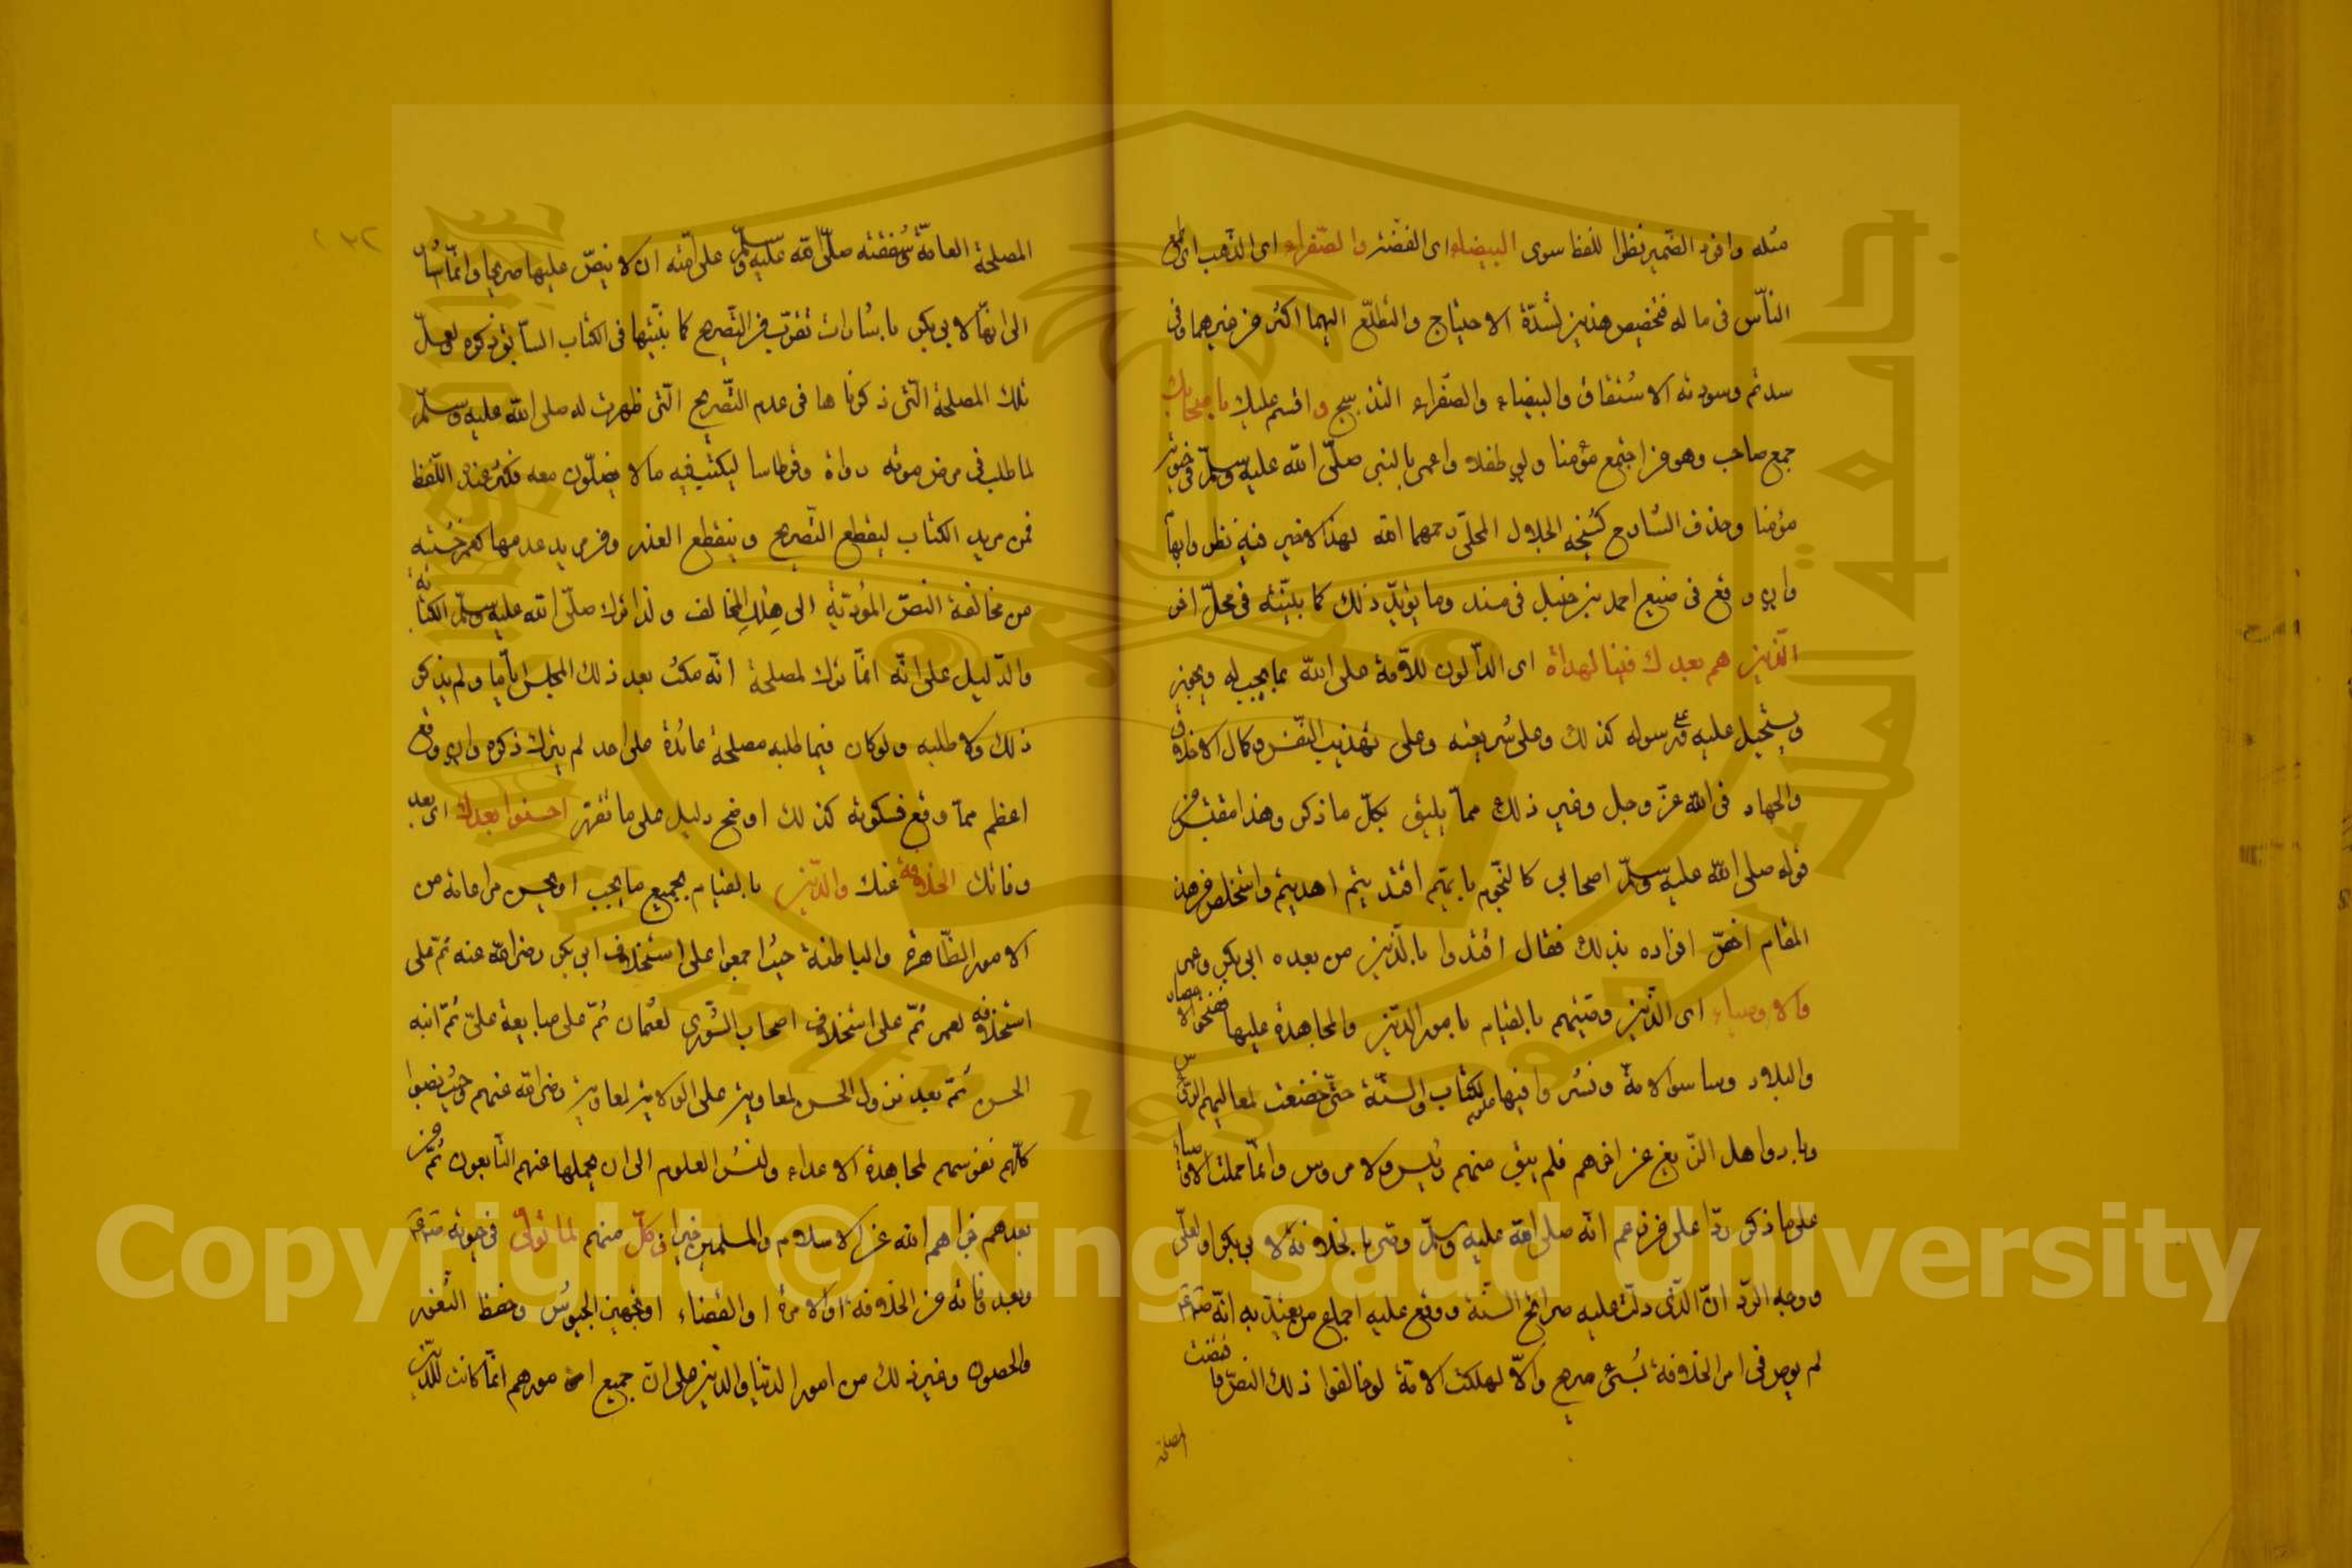 مثله وافرد الضمير نظرا للفظ سوى البيضاء اى الفضة والصفراء اى الذهب اى طمع
الناس فى ماله فتخصيص هذين لشدة الاحتياج والتطلع اليهما اكثر من غيرهما وفى
والبيضاء والصفراء واقسم عليك باصحابك
جمع صاحب وهو من اجتمع مؤمنا ولو طفلا واعمى بالنبى صلى الله عليه وسلم فى حيوته
مؤمنا وحذف الشارح كشيخه الجلال المحلى رحمهما الله لهذا الاخير فيه نظر وابهام
وان وقع فى صنيع احمد بن حنبل فى مسنده وما يؤيد ذلك كما بينته فى محل اخر
الذين هم بعدك فينا الهداة اى الدالون للامة على الله بما يجب له ويجوز
ويستحيل عليه وعلى رسوله كذلك وعلى شريعته وعلى تهذيب النفس وكمال الاخلاق
والجهاد فى الله عز وجل وغير ذلك مما يليق بكل ما ذكر وهذا مقتبس من
قوله صلى الله عليه وسلم اصحابي كالنجوم بايهم اقتديتم اهتديتم واستخلص من هذا
المقام اخص افراده بذلك فقال اقتدوا بالذين من بعده ابى بكر وعمر
والاوصياء اى الذين وصيتهم بالقيام بامور الدين والمجاهدة عليها ففتحوا الامصار
والبلاد وساسوا الامة ونشروا فيها علوم الكتاب والسنة حتى خضعت لمعاليهم
وبادوا اهل الزيغ عن اخرهم فلم يبق منهم رئيس ولا مرؤس وانما حملت الاوصياء
على ما ذكر ردا على من زعم انه صلى الله عليه وسلم وصى بالخلافة لابى بكر او لعلى
ووجه الرد ان الذى دلت عليه صرائح السنة ووقع عليه اجماع من يعتد به انه صلعم
لم يوص فى امر الخلافة بشئ صريح والا لهلكت الامة لو خالفوا ذلك النص فاقتضت
المصلحة
المصلحة العامة وشفقته صلى الله عليه وسلم على امته ان لا ينص عليها صريحا وانما اشار
الى انها لابى بكر باشارات تقرب من التصريح كما بينتها فى الكتاب السابق ذكره ولعل
تلك المصلحة التى ذكرناها فى عدم التصريح التى ظهرت له صلى الله عليه وسلم
لما طلب فى مرض موته دواة وقرطاسا ليكتب فيه ما لا يضلون معه فكثر عنده اللغط
فمن مريد الكتاب ليقطع التصريح وينقطع العذر ومن مريد عدمها كعمر خشية
من مخالفة النص المؤدية الى هلك المخالف ولذا ترك صلى الله عليه وسلم الكتابة
والدليل على انه انما ترك لمصلحة انه مكث بعد ذلك المجلس اياما ولم يذكر
ذلك ولا طلبه ولو كان فيما طلبه مصلحة عائدة على احد لم يترك ذكره وان وقع
اعظم مما وقع فسكوته كذلك اوضح دليل على ما تقرر احسنوا بعدك اى بعد
وفاتك الخلافة عنك والدين بالقيام بجميع ما يجب او يحسن مراعاته من
الامور الظاهرة والباطنة حيث اجمعوا على استخلاف ابى بكر رضى الله عنه ثم على
استخلافه لعمر ثم على استخلاف اصحاب الشورى لعثمان ثم على مبايعة على ثم ابنه
الحسن ثم بعد نزول الحسن لمعاوية على الولاية لمعاوية رضى الله عنهم وحيث نصبوا
كلهم نفوسهم لمجاهدة الاعداء ولنشر العلوم الى ان حملها عنهم التابعون ثم من
بعدهم فجزاهم الله عن الاسلام والمسلمين خيرا فى كل منهم لما تولى فى حيوته صلعم
وبعد وفاته من الخلافة او الامرة او القضاء او تجهيز الجيوش وحفظ الثغور
والحصون وغير ذلك من امور الدنيا والدين على ان جميع امورهم انما كانت للدين